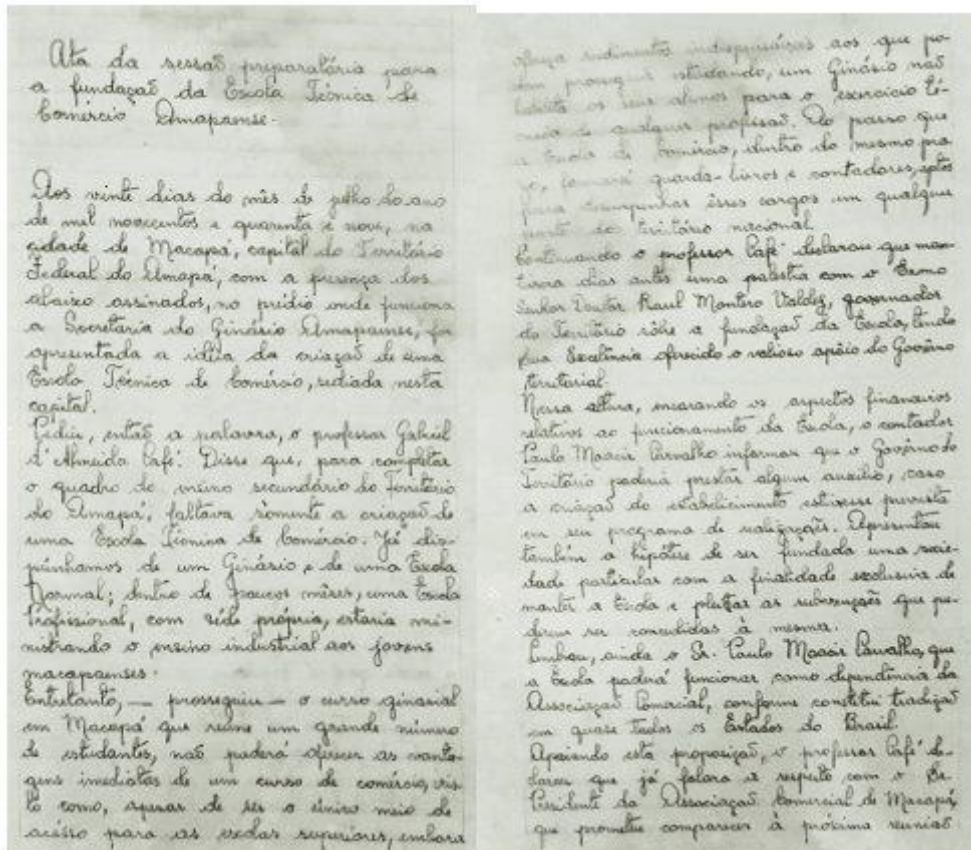 Ata da sessão preparatória para
a fundação da Escola Técnica de
Comércio Amapaense.
Aos vinte dias do mês de julho do ano
de mil novecentos e quarenta e nove, na
cidade de Macapá, capital do Território
Federal do Amapá, com a presença dos
abaixo assinados, no prédio onde funciona
a Secretaria do Ginásio Amapaense, foi
apresentada a idéia da criação de uma
Escola Técnica de Comércio, sediada nesta
capital.
Pediu, então a palavra, o professor Gabriel
d'Almeida Café. Disse que, para completar
o quadro do ensino secundário do Território
do Amapá, faltava somente a criação de
uma Escola Técnica de Comércio. Já dis-
púnhamos de um Ginásio e de uma Escola
Normal; dentro de poucos mêses, uma Escola
Profissional, com séde própria, estaria mi-
nistrando o ensino industrial aos jovens
macapaenses.
Entretanto, — prosseguiu — o curso ginasial
em Macapá que reúne um grande número
de estudantes, não poderá oferecer as vanta-
gens imediatas de um curso de comércio, vis-
to como, apesar de ser o único meio de
acésso para as escolas superiores, embora
ofereça rudimentos indispensáveis aos que po-
dem prosseguir estudando, um Ginásio não
habilita os seus alunos para o exercício téc-
nico de qualquer profissão. Ao passo que
a Escola de Comércio, dentro do mesmo pra-
zo, formará guarda-livros e contadores, aptos
para desempenhar êsses cargos em qualquer
parte do território nacional.
Continuando o professor Café declarou que man-
tivera dias antes uma palestra com o Exmo
Senhor Doutor Raul Montero Valdez, governador
do Território sôbre a fundação da Escola, tendo
Sua Excelência oferecido o valioso apôio do Govêrno
territorial.
Nessa altura, encarando os aspectos financeiros
relativos ao funcionamento da Escola, o contador
Paulo Moacir Carvalho informou que o Govêrno do
Território poderia prestar algum auxílio, caso
a criação do estabelecimento estivesse prevista
em seu programa de realizações. Apresentou
também a hipótese de ser fundada uma socie-
dade particular com a finalidade exclusiva de
manter a Escola e pleitear as subvenções que pu-
dessem ser concedidas à mesma.
Lembrou, ainda o Sr. Paulo Moacir Carvalho, que
a Escola poderá funcionar como dependência da
Associação Comercial, conforme constitui tradição
em quase todos os Estados do Brasil.
Apoiando esta proposição, o professor Café de-
clarou que já falara a respeito com o Sr.
Presidente da Associação Comercial de Macapá,
que prometeu comparecer à próxima reunião